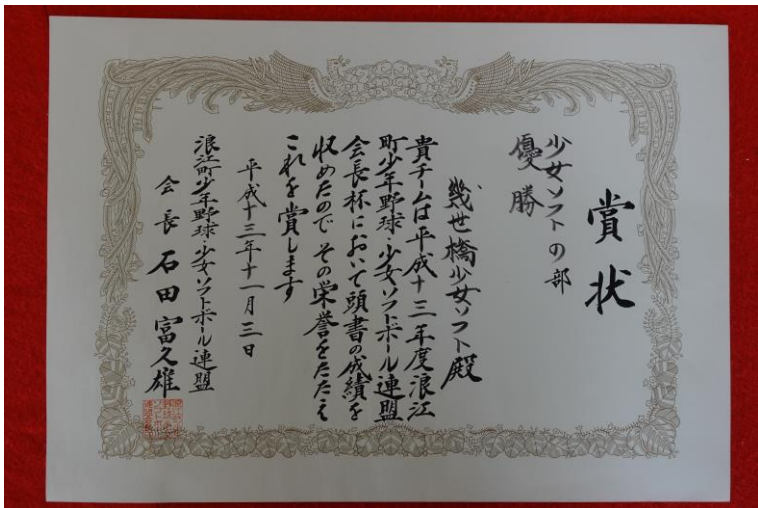 賞状
少女ソフトの部
優勝
幾世橋少女ソフト殿
貴チームは平成十三年度浪江
町少年野球・少女ソフトボール連盟
会長杯において頭書の成績を
収めたのでその栄誉をたたえ
これを賞します
平成十三年十一月三日
浪江町少年野球・少女ソフトボール連盟
会長 石田富久雄